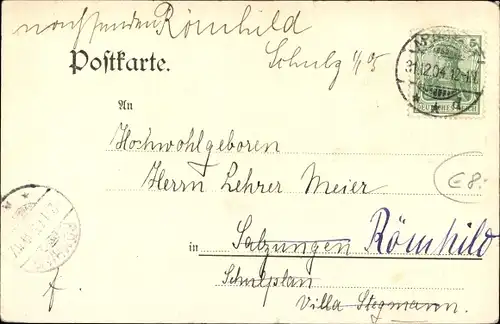 nachsenden Römhild
Schulz 1/1 05
Postkarte.
31.12.04
DEUTSCHES REICH
An
Hochwohlgeboren
Herrn Lehrer Meier
in Salzungen Römhild
Schulplan
Villa Stegmann.
€ 8.-